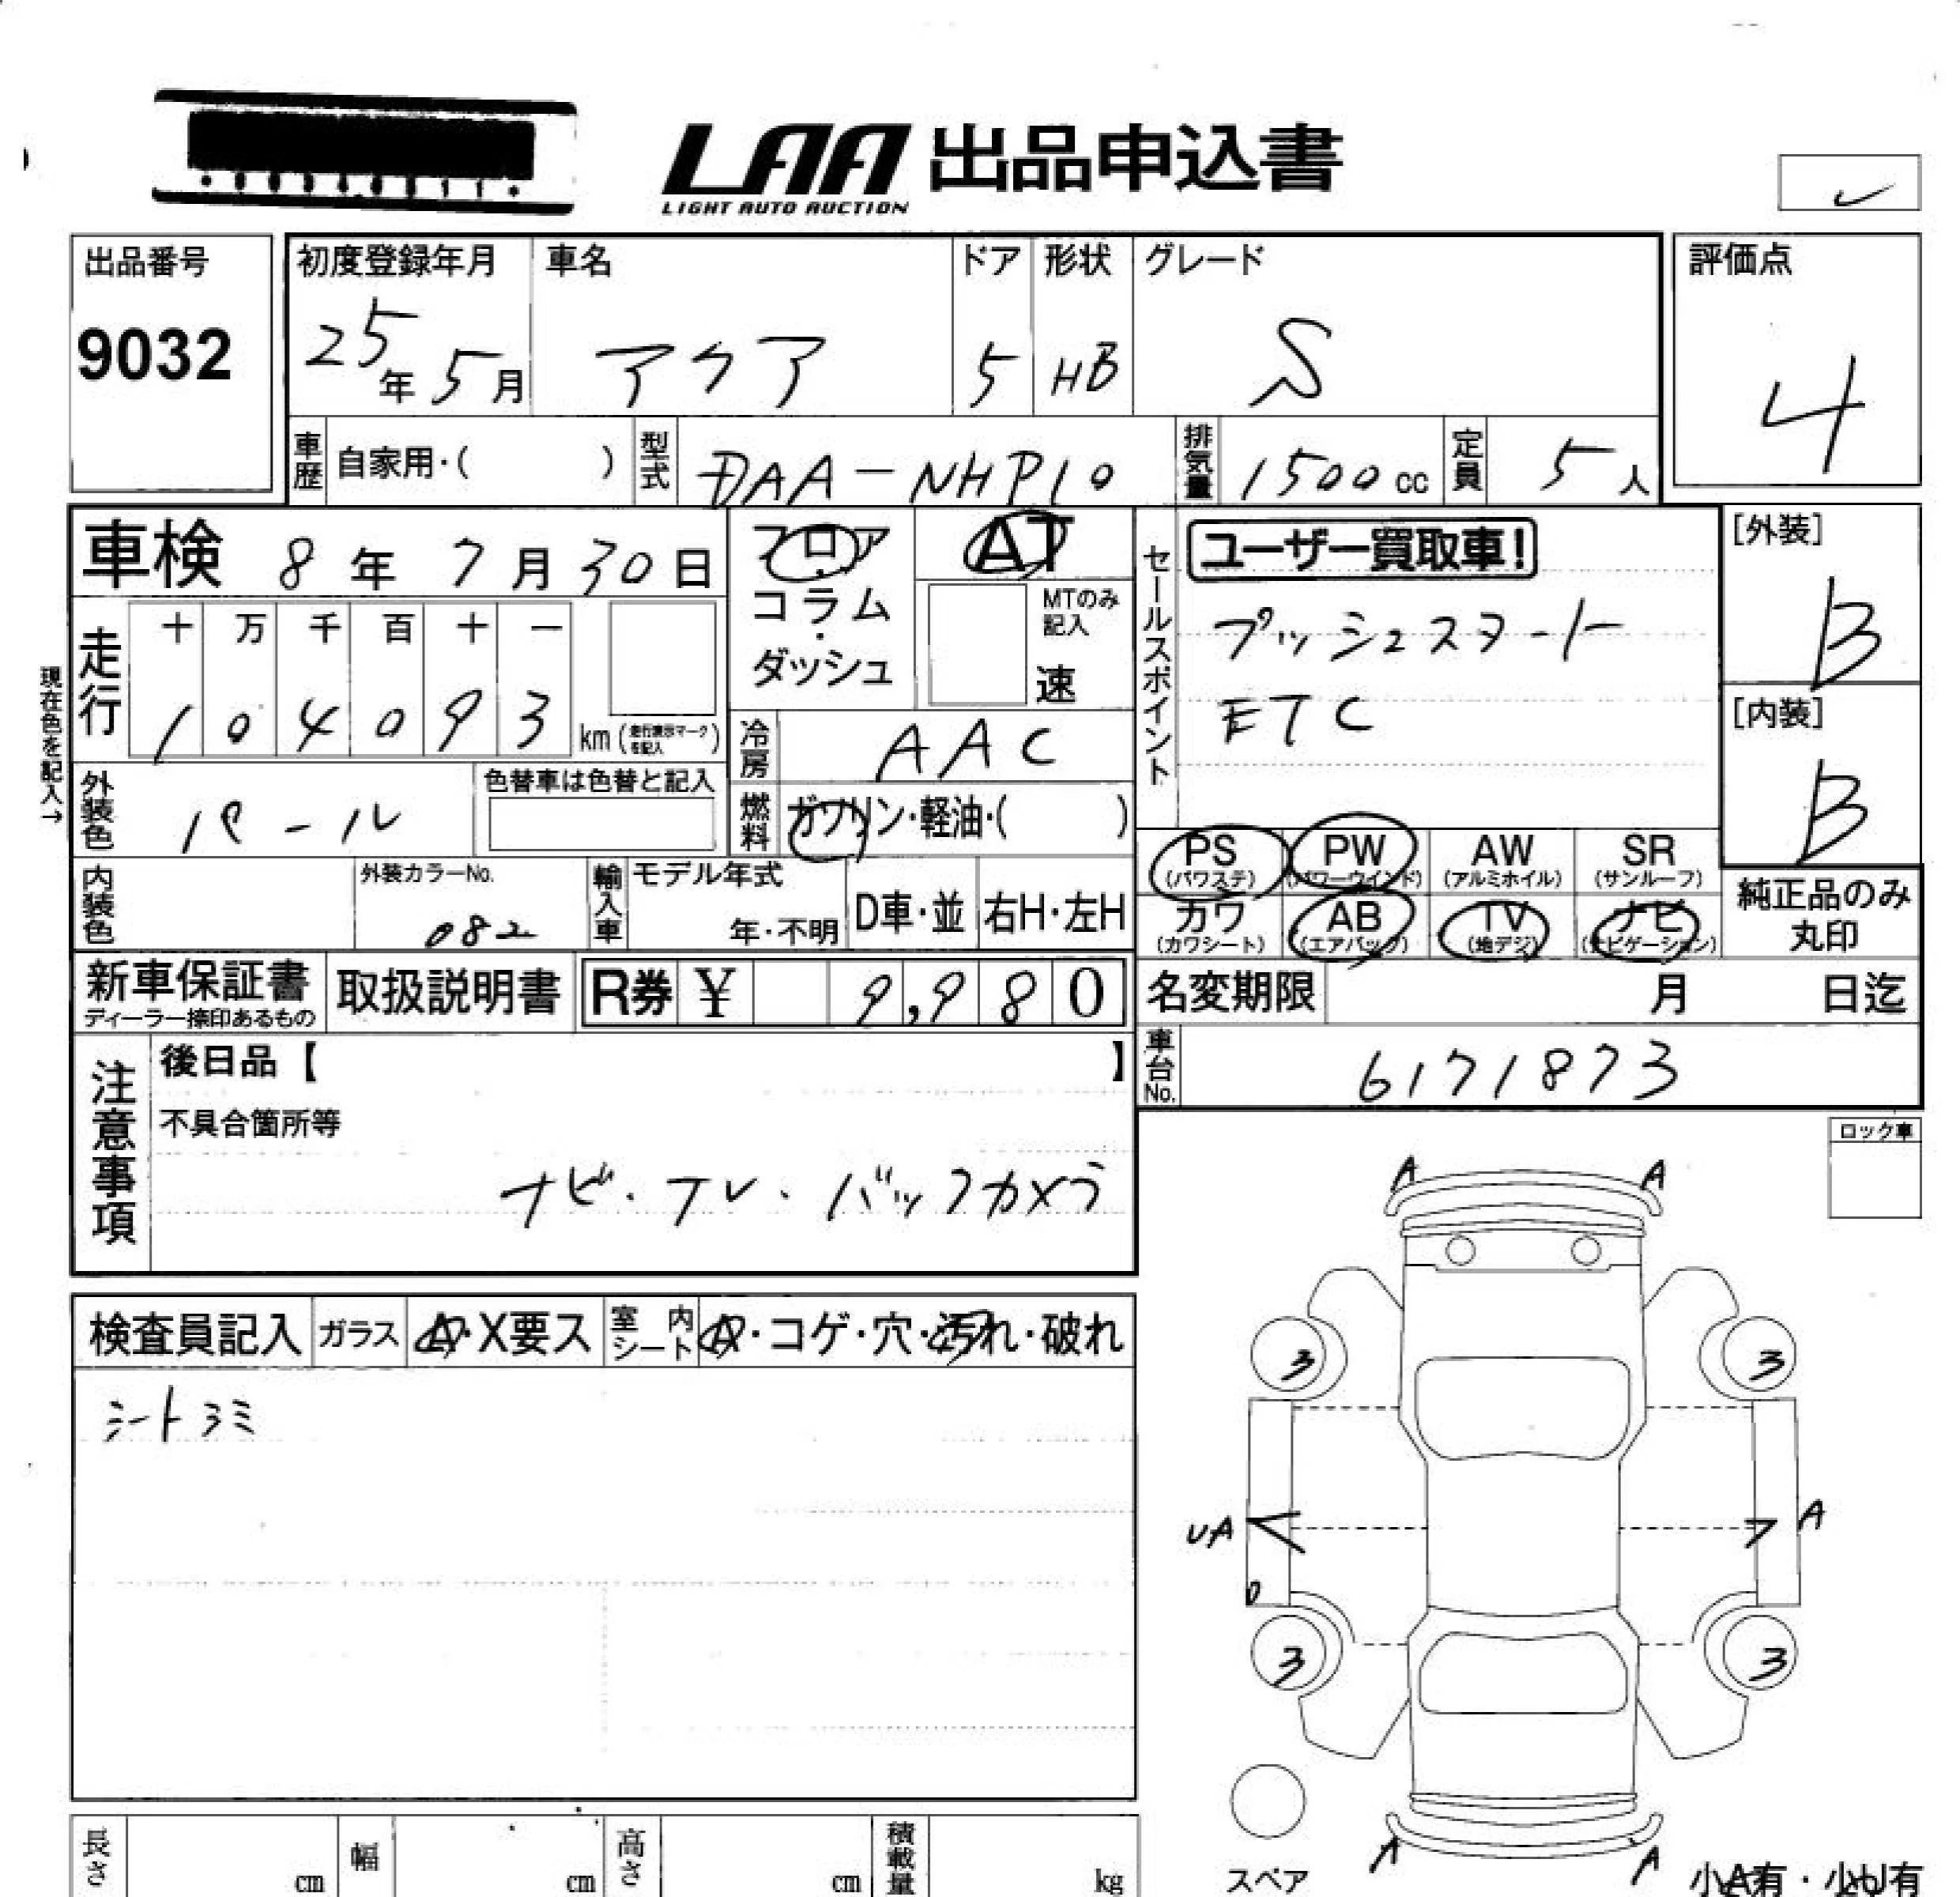 LAA 出品申込書
LIGHT AUTO AUCTION
出品番号
9032
初度登録年月
25年5月
車名
アクア
ドア
5
形状
HB
グレード
S
評価点
4
車歴 自家用・( )
型式 DAA-NHP10
排気量 1500cc
定員 5人
車検 8年7月30日
フロア・コラム・ダッシュ
AT
MTのみ記入
速
走行
十 万 千 百 十 一
1 0 4 0 9 3 km (走行表示マークを記入)
現在色を記入→
外装色 パール
色替車は色替と記入
冷房 AAC
燃料 ガソリン・軽油・( )
セールスポイント
ユーザー買取車!
プッシュスタート
ETC
[外装]
B
[内装]
B
PS (パワステ)
PW (パワーウインド)
AW (アルミホイル)
SR (サンルーフ)
カワ (カワシート)
AB (エアバック)
TV (地デジ)
ナビ (ナビゲーション)
純正品のみ丸印
内装色
外装カラーNo.
082
輸入車
モデル年式
年・不明
D車・並
右H・左H
新車保証書
ディーラー捺印あるもの
取扱説明書
R券 ¥ 9,980
名変期限 月 日迄
車台No. 6171873
注意事項
後日品【 】
不具合箇所等
ナビ・テレ・バックカメラ
ロック車
検査員記入
ガラス A・X要ス
室内シート A・コゲ・穴・汚れ・破れ
シートシミ
A A
3 3
UA A
3 3
A A
スペア
小A有・小U有
長さ cm
幅 cm
高さ cm
積載量 kg